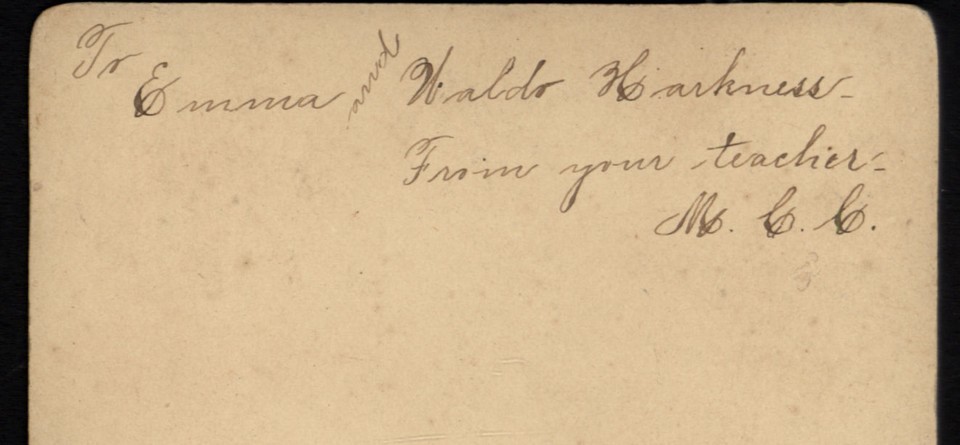 To Emma and Waldo Harkness-
From your teacher-
M. C. C.